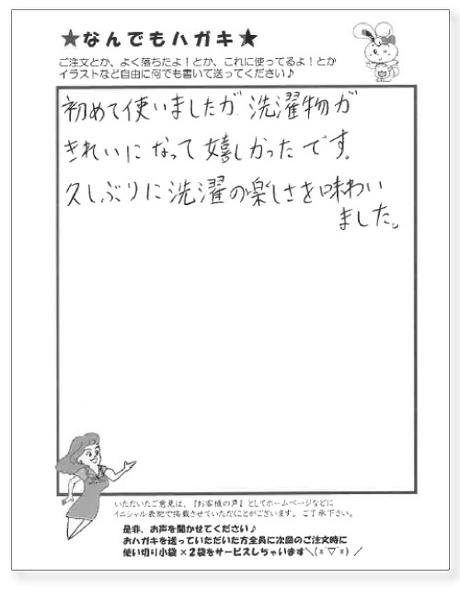 ★なんでもハガキ★
ご注文とか、よく落ちたよ！とか、これに使ってるよ！とか
イラストなど自由に何でも書いて送ってください♪
初めて使いましたが 洗濯物が
きれいに なって 嬉しかったです。
久しぶりに洗濯の楽しさを味わい
ました。
いただいたご意見は、『お客様の声』としてホームページなどに
イニシャル表記で掲載させていただくことがございます。ご了承下さい。
是非、お声を聞かせてください♪
おハガキを送っていただいた方全員に次回のご注文時に
使い切り小袋×2袋をサービスしちゃいます＼(*´▽`*)／